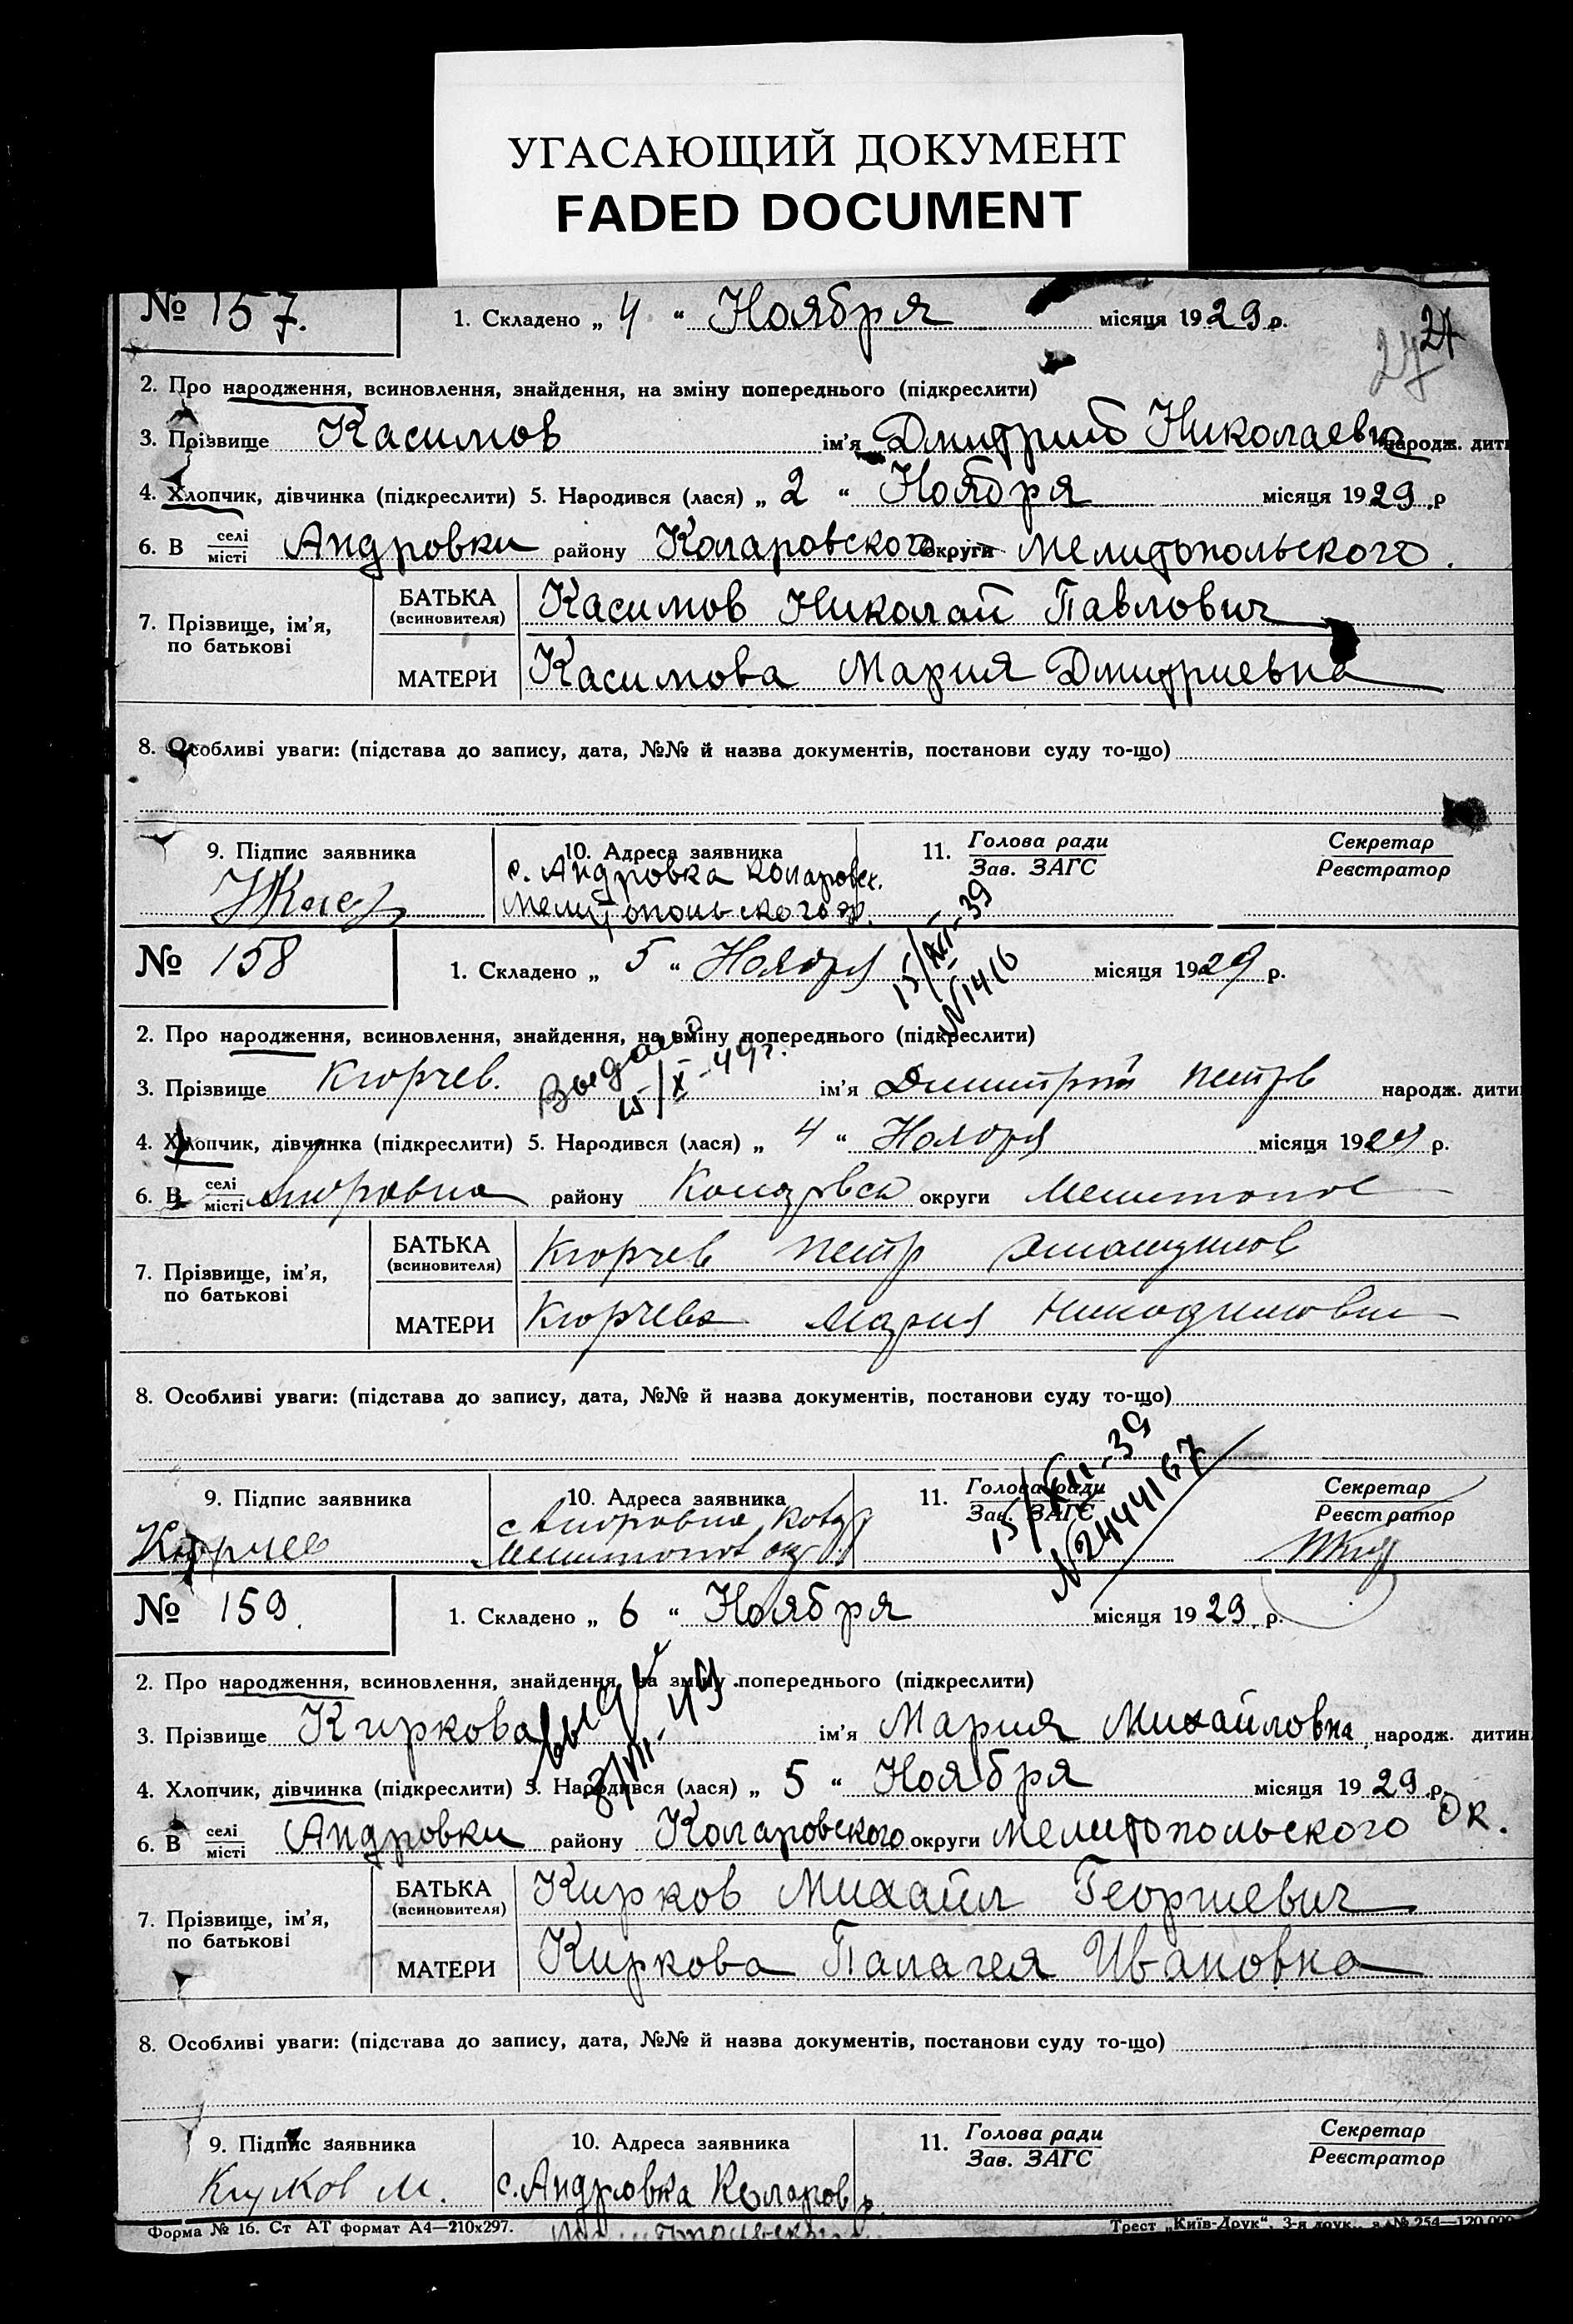 УГАСАЮЩИЙ ДОКУМЕНТ
FADED DOCUMENT
№ 157. 1. Складено „ 4 “ Ноября місяця 1929 р.
27 27
2. Про народження, всиновлення, знайдення, на зміну попереднього (підкреслити)
3. Прізвище Касимов ім'я Дмитрий Николаевич народж. дити
4. Хлопчик, дівчинка (підкреслити) 5. Народився (лася) „ 2 “ Ноября місяця 1929 р
6. В селі місті Андровки району Коларовского округи Мелитопольского.
7. Прізвище, ім'я, по батькові
БАТЬКА (всиновителя) Касимов Николай Павлович
МАТЕРИ Касимова Мария Дмитриевна
8. Особливі уваги: (підстава до запису, дата, №№ й назва документів, постанови суду то-що)
9. Підпис заявника 10. Адреса заявника 11. Голова ради Зав. ЗАГС Секретар Реєстратор
с. Андровка Коларовск.
Мелитопольского
15/XII-39
№1416
№ 158 1. Складено „ 5 “ Ноября місяця 1929 р.
2. Про народження, всиновлення, знайдення, на зміну попереднього (підкреслити)
3. Прізвище Кюрчев. ім'я Димитрий Петров народж. дити
4. Хлопчик, дівчинка (підкреслити) 5. Народився (лася) „ 4 “ Ноября місяця 1929 р.
6. В селі місті Андровка району Коларовск округи Мелитопол
7. Прізвище, ім'я, по батькові
БАТЬКА (всиновителя) Кюрчев Петр
МАТЕРИ Кюрчева Мария Никодимовн
8. Особливі уваги: (підстава до запису, дата, №№ й назва документів, постанови суду то-що)
15/XII-39
№2444167
9. Підпис заявника 10. Адреса заявника 11. Голова ради Зав. ЗАГС Секретар Реєстратор
Кюрчев с Андровка
Мелитопол ок
№ 159. 1. Складено „ 6 “ Ноября місяця 1929 р.
2. Про народження, всиновлення, знайдення, на зміну попереднього (підкреслити)
3. Прізвище Киркова ім'я Мария Михайловна народж. дитин
4. Хлопчик, дівчинка (підкреслити) 5. Народився (лася) „ 5 “ Ноября місяця 1929 р.
6. В селі місті Андровки району Коларовского округи Мелитопольского ок.
7. Прізвище, ім'я, по батькові
БАТЬКА (всиновителя) Кирков Михаил Георгиевич
МАТЕРИ Киркова Палагея Ивановна
8. Особливі уваги: (підстава до запису, дата, №№ й назва документів, постанови суду то-що)
9. Підпис заявника 10. Адреса заявника 11. Голова ради Зав. ЗАГС Секретар Реєстратор
Кирков М. с. Андровка Коларов
Форма № 16. Ст АТ формат А4—210х297. Трест „Київ-Друк“, 3-я друк., № 254—120.000